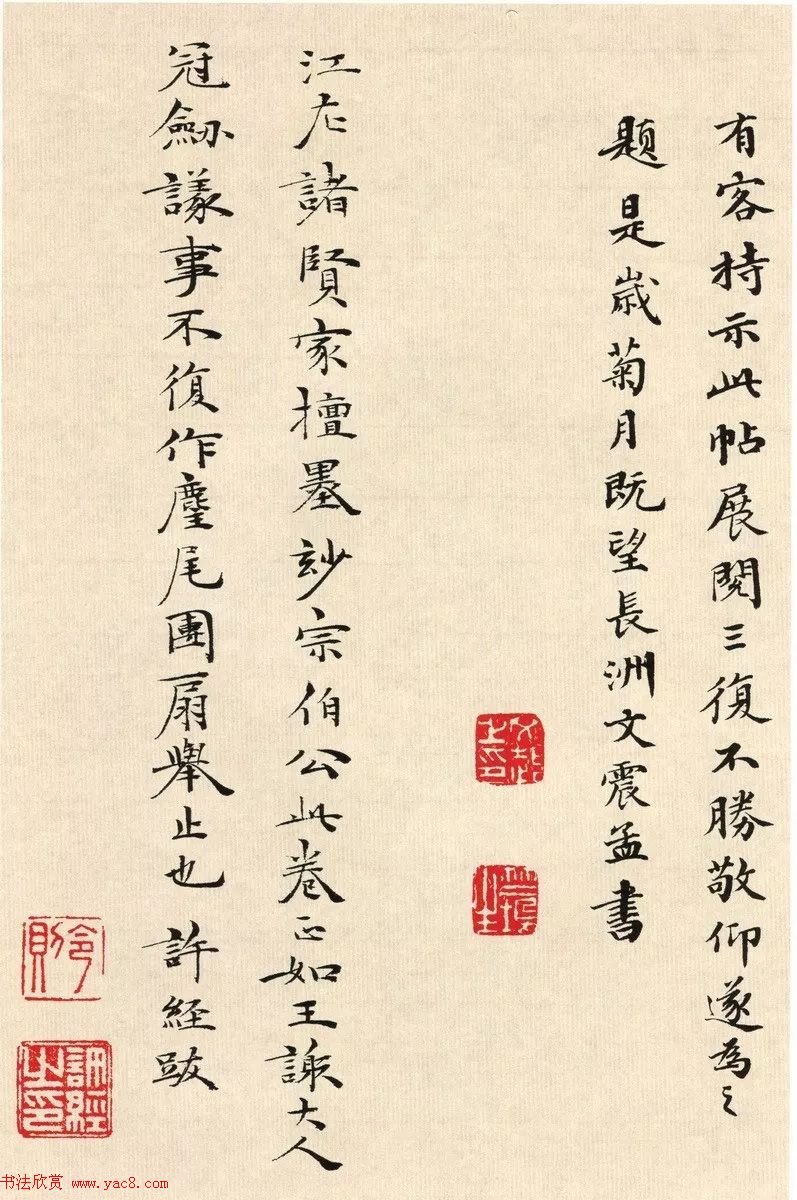 有客持示此帖展閱三復不勝敬仰遂為之
題是歲菊月既望長洲文震孟書
江左諸賢家擅墨玅宗伯公此卷正如王謝大人
冠劒議事不復作麈尾團扇舉止也 許經跋
令則
許經之印
书法欣赏 www.yac8.com